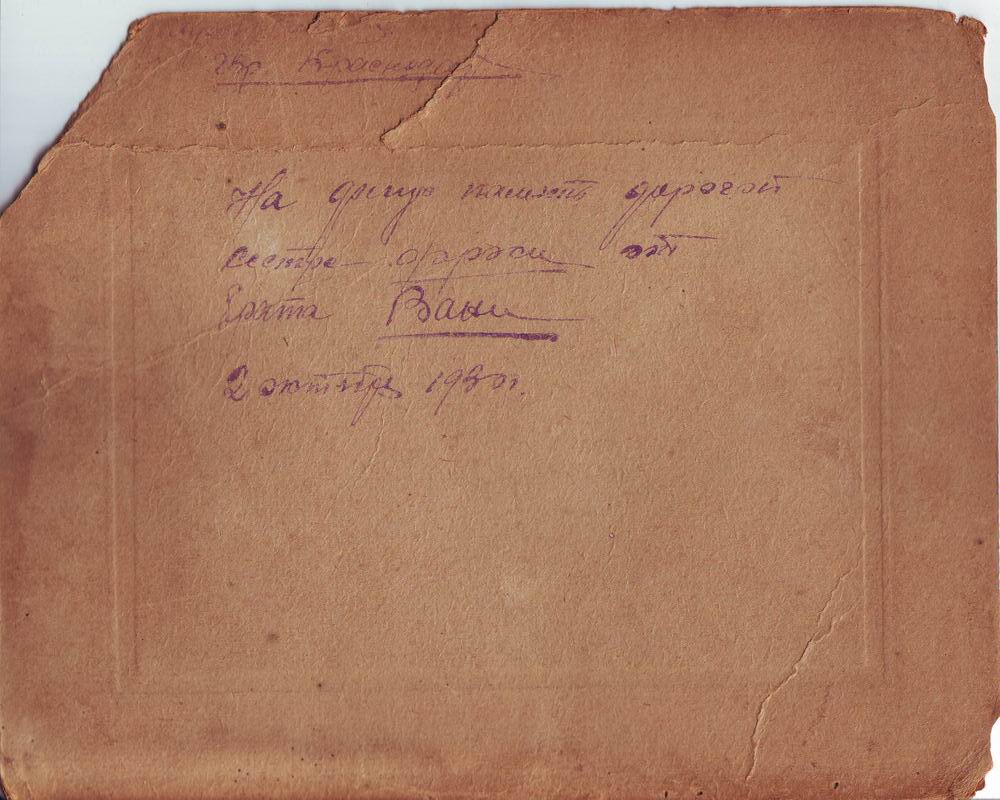 гор Краснодар
На долгую память дорогой
сестре от
брата Вани
2 октября 1930г.